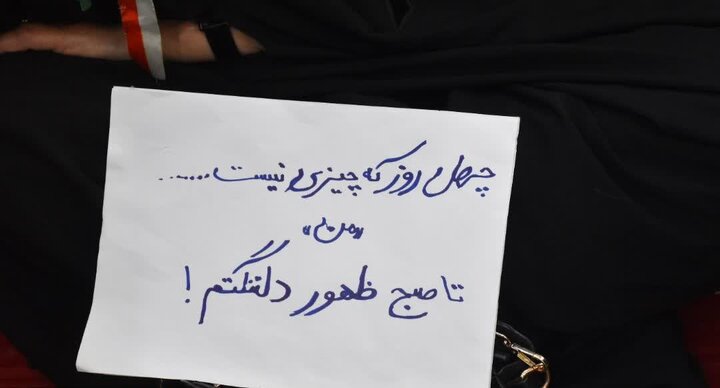 چهل روز که چیزی نیست.......
«من»
تا صبح ظهور دلتنگتم!